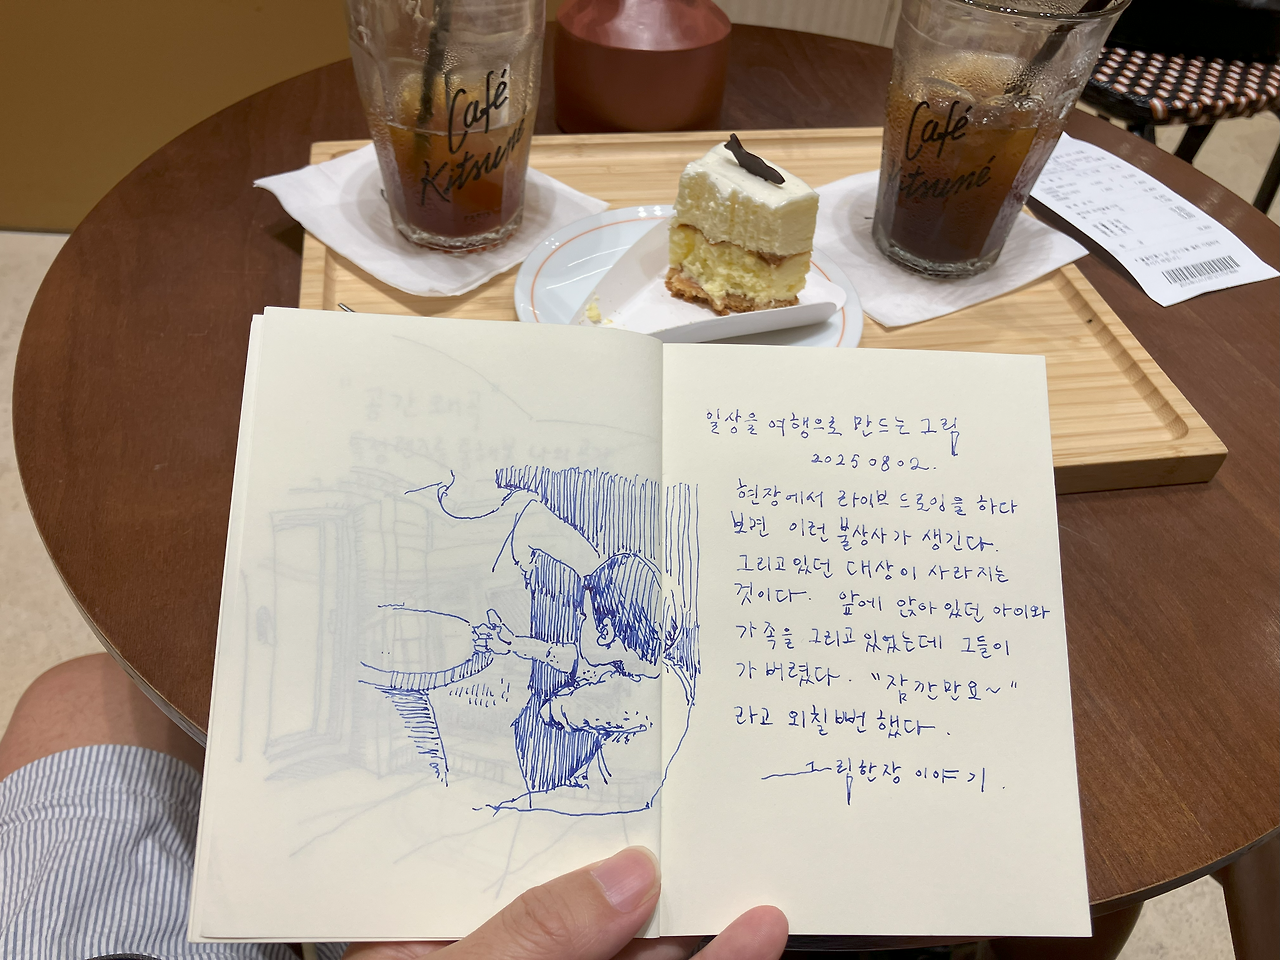 Café
Kitsuné
PARIS
Café
Kitsuné
일상을 여행으로 만드는 그림
20250802.
현장에서 라이브 드로잉을 하다
보면 이런 불상사가 생긴다.
그리고 있던 대상이 사라지는
것이다. 앞에 앉아 있던 아이와
가족을 그리고 있었는데 그들이
가 버렸다. "잠깐만요~"
라고 외칠뻔 했다.
그림한장 이야기.